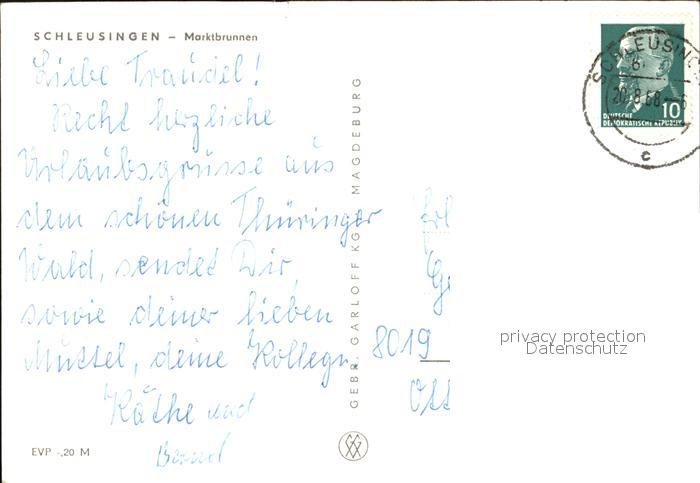 SCHLEUSINGEN – Marktbrunnen
Liebe Traudel!
Recht herzliche
Urlaubsgrüsse aus
dem schönen Thüringer
Wald, sendet Dir,
sowie deiner lieben
Muttel, deine Kollegn.
Käthe und
Bernd
EVP -,20 M
GEBR. GARLOFF KG MAGDEBURG
SCHLEUSING
20.8.68
c
10
DEUTSCHE
DEMOKRATISCHE REPUBLIK
Frl
8019
privacy protection
Datenschutz